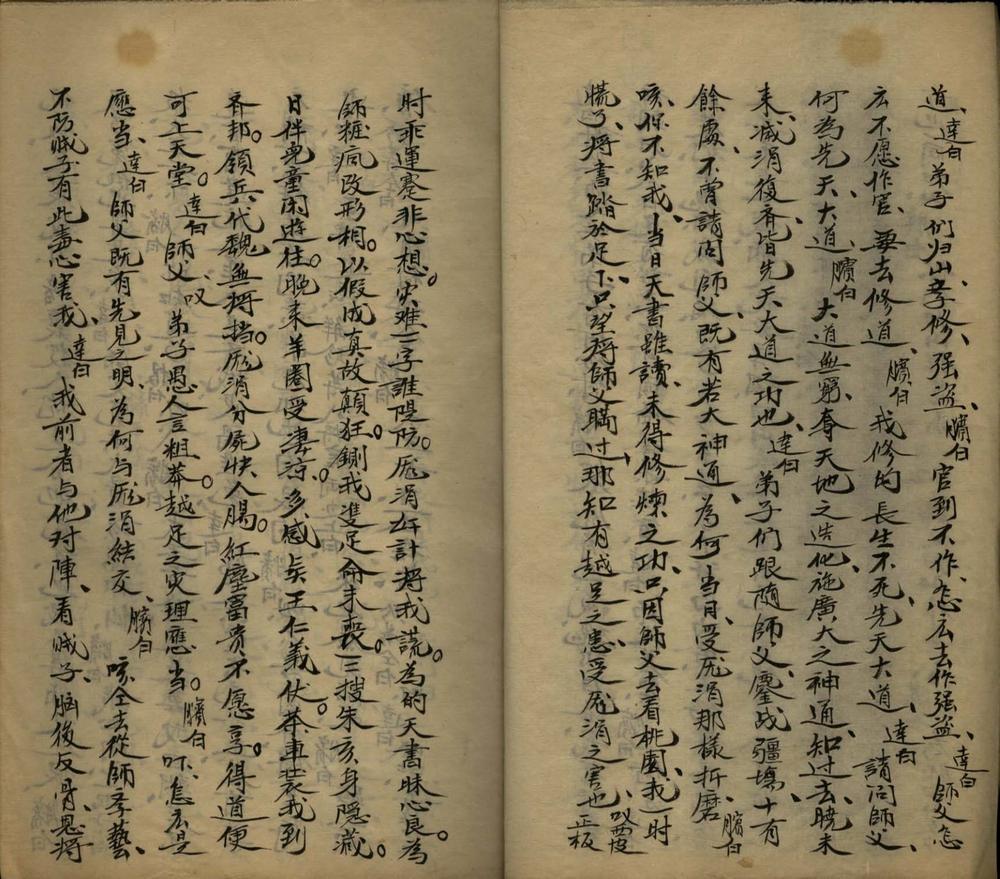 道、達白弟子們归山李修、强盗、臏白官到不作、怎么去作强盗、達白師父怎
么不愿作官、要去修道、臏白我修的長生不死先天大道、達白請问師父、
何為先天大道、臏白大道無窮、奪天地之造化、施廣大之神通、知过去曉未
来、减涓復齐皆先天大道之功也、達白弟子们跟随師父、鏖战疆塲、十有
餘處、不曾請问師父、既有若大神通、為何當日受厐涓那樣折磨、臏白
咳、你不知我、當日天書雖讀、未得修煉之功、只因師父去看桃園、我一时
慌了、将書踏於足下、只望将師父瞞过、那知有越足之患、受厐涓之害也、叹西皮正板
时乖運蹇非心想。灾难二字誰隄防。厐涓奸計将我謊。為的天書昧心良。為
師粧疯改形相。以假成真故顛狂。鍘我雙足命未喪。三搜朱亥身隱藏。
日伴兒童闲遊往。晚来羊圈受凄涼。多感吴王仁義伏。茶車装我到
齐邦。領兵代魏無将挡。厐涓分屍快人腸。紅塵富贵不愿享。得道便
可上天堂。達白師父、叹弟子愚人言粗莽。越足之灾理應当。臏白吓、怎么是
應当、達白師父既有先見之明、為何与厐涓結交、臏白咳、仝去從師李藝、
不防贼子有此毒心害我、達白我前者与他对陣、看贼子、脑後反骨、恩将